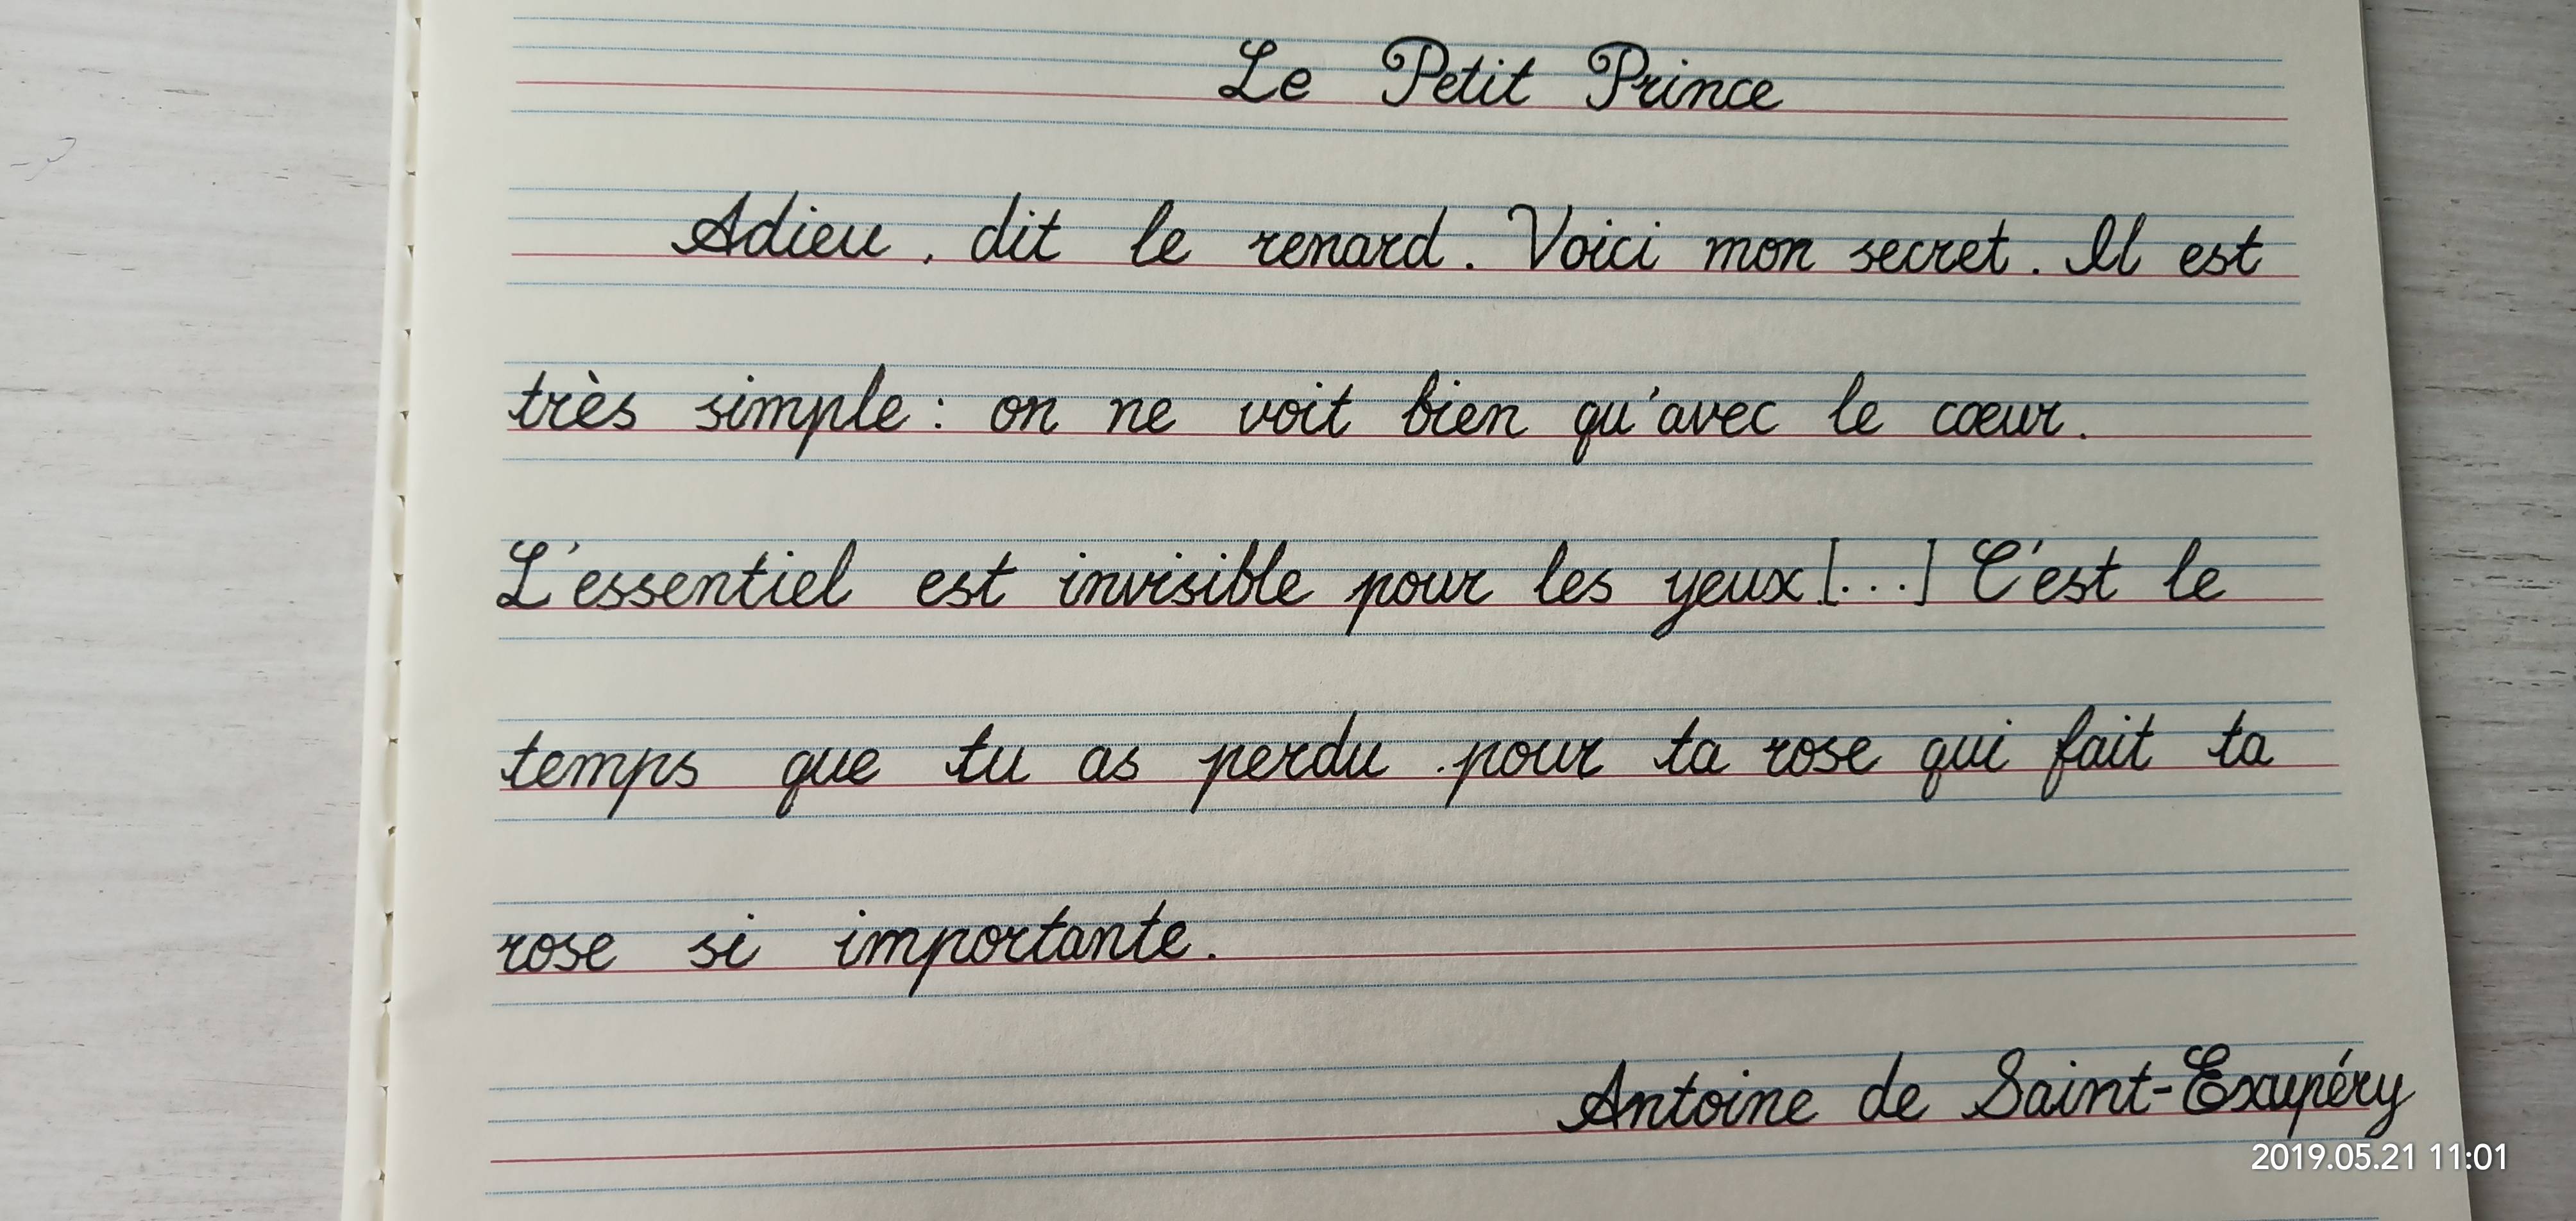 Le Petit Prince
Adieu, dit le renard. Voici mon secret. Il est
très simple : on ne voit bien qu'avec le cœur.
L'essentiel est invisible pour les yeux [...] C'est le
temps que tu as perdu pour ta rose qui fait ta
rose si importante.
Antoine de Saint-Exupéry
2019.05.21 11:01